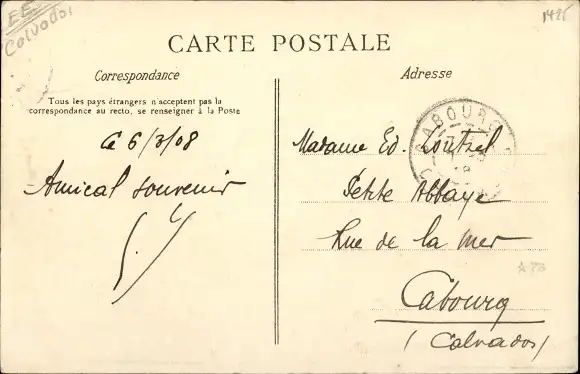 EE
Calvados
1485
CARTE POSTALE
Correspondance
Adresse
Tous les pays étrangers n'acceptent pas la
correspondance au recto, se renseigner à la Poste
Ce 6/3/08
Amical souvenir
Madame Ed.
Petite Abbaye
Rue de la Mer
Cabourg
(Calvados)
CABOURG